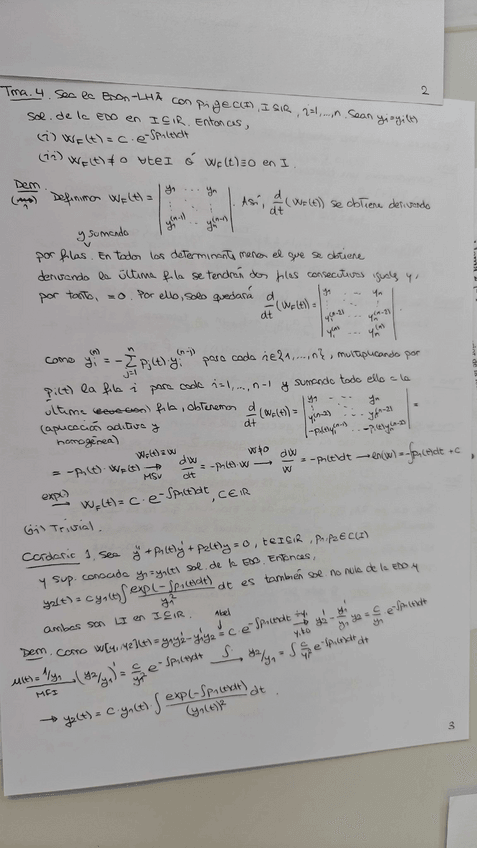 2
Tma. 4. Sea la EDOn-LHA con p_i ∈ C(I), I⊆ℝ, i=1,...,n. Sean y_i=y_i(t)
sol. de la EDO en I⊆ℝ. Entonces,
(i) W_F(t) = C · e^{-∫p_1(t)dt}
(ii) W_F(t) ≠ 0 ∀t∈I ó W_F(t) ≡ 0 en I.
Dem.
(i) Definimos W_F(t) = | y_1 ... y_n ; ⋮ ⋱ ⋮ ; y_1^{(n-1)} ... y_n^{(n-1)} |. Así, d/dt (W_F(t)) se obtiene derivando
y sumando
por filas. En todos los determinantes menos el que se obtiene
derivando la última fila se tendrán dos filas consecutivas iguales y,
por tanto, = 0. Por ello, solo quedará d/dt (W_F(t)) = | y_1 ... y_n ; ⋮ ; y_1^{(n-2)} ... y_n^{(n-2)} ; y_1^{(n)} ... y_n^{(n)} |.
Como y_i^{(n)} = -∑_{j=1}^{n} p_j(t) · y_i^{(n-j)} para cada i∈{1,...,n}, multiplicando por
p_i(t) la fila i para cada i=1,...,n-1 y sumando todo ello a la
última fila, obtenemos d/dt (W_F(t)) = | y_1 ... y_n ; ⋮ ; y_1^{(n-2)} ... y_n^{(n-2)} ; -p_1(t)y_1^{(n-1)} ... -p_1(t)y_n^{(n-1)} | =
(aplicación aditiva y
homogénea)
= -p_1(t) · W_F(t) →^{W_F(t)≡W}_{MSV} dW/dt = -p_1(t)·W →^{W≠0} dW/W = -p_1(t)dt → ln(W) = -∫p_1(t)dt + C
→^{exp()} W_F(t) = C · e^{-∫p_1(t)dt}, C∈ℝ
(ii) Trivial.
Corolario 1. Sea y'' + p_1(t)y' + p_2(t)y = 0, t∈I⊆ℝ, p_1,p_2∈C(I)
y sup. conocida y_1=y_1(t) sol. de la EDO. Entonces,
y_2(t) = C y_1(t) ∫ exp(-∫p_1(t)dt)/y_1^2 dt es también sol no nula de la EDO y
ambas son LI en I⊆ℝ.
Abel
Dem. Como W[y_1,y_2](t) = y_1y_2' - y_1'y_2 = C e^{-∫p_1(t)dt} →^{÷y_1}_{y_1≠0} y_2' - y_1'/y_1 y_2 = C/y_1 e^{-∫p_1(t)dt}
→^{μ(t)=1/y_1}_{MFI} (y_2/y_1)' = C/y_1^2 e^{-∫p_1(t)dt} →^{∫} y_2/y_1 = ∫ C/y_1^2 e^{-∫p_1(t)dt} dt
→ y_2(t) = C · y_1(t) ∫ exp(-∫p_1(t)dt)/(y_1(t))^2 dt.
3